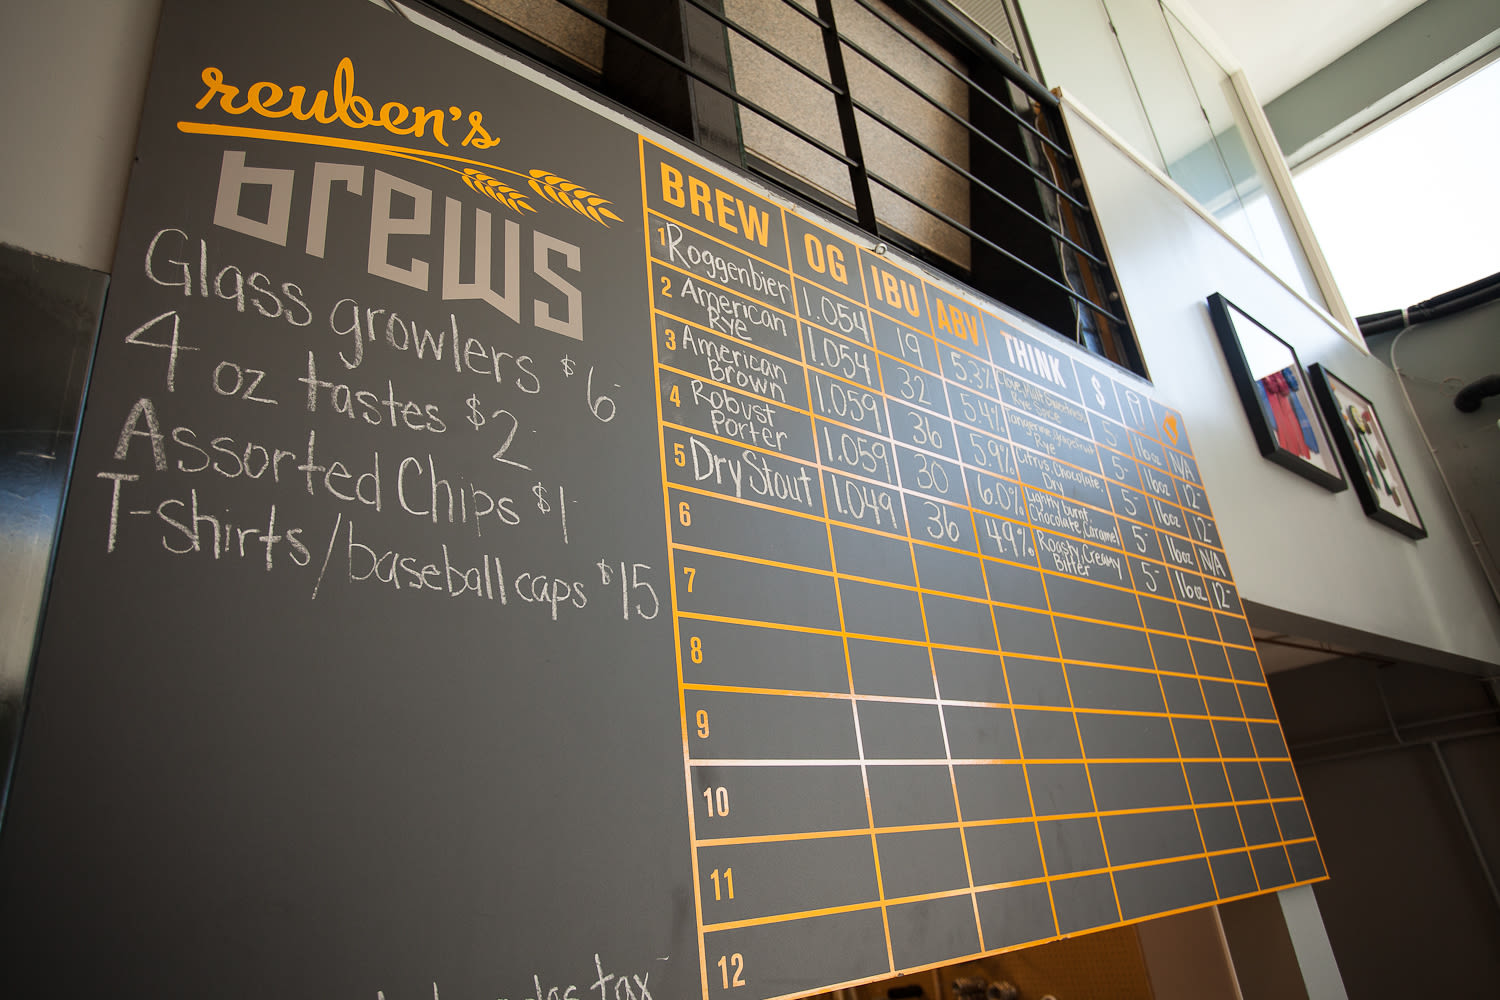 reuben's
brews
Glass growlers $6-
4 oz tastes $2-
Assorted Chips $1-
T-shirts/baseball caps $15
sales tax
BREW OG IBU ABV THINK $
1 Roggenbier 1.054 19 5.3% Clove, Fruit Sweetness, Rye Spice 5- 16oz N/A
2 American Rye 1.054 32 5.4% Tangerine, Grapefruit, Rye 5- 16oz 12-
3 American Brown 1.059 36 5.9% Citrus, Chocolate, Dry 5- 16oz 12-
4 Robust Porter 1.059 30 6.0% Lightly burnt, Chocolate, Caramel 5- 16oz N/A
5 Dry Stout 1.049 36 4.9% Roasty, Creamy Bitter 5- 16oz 12-
6
7
8
9
10
11
12